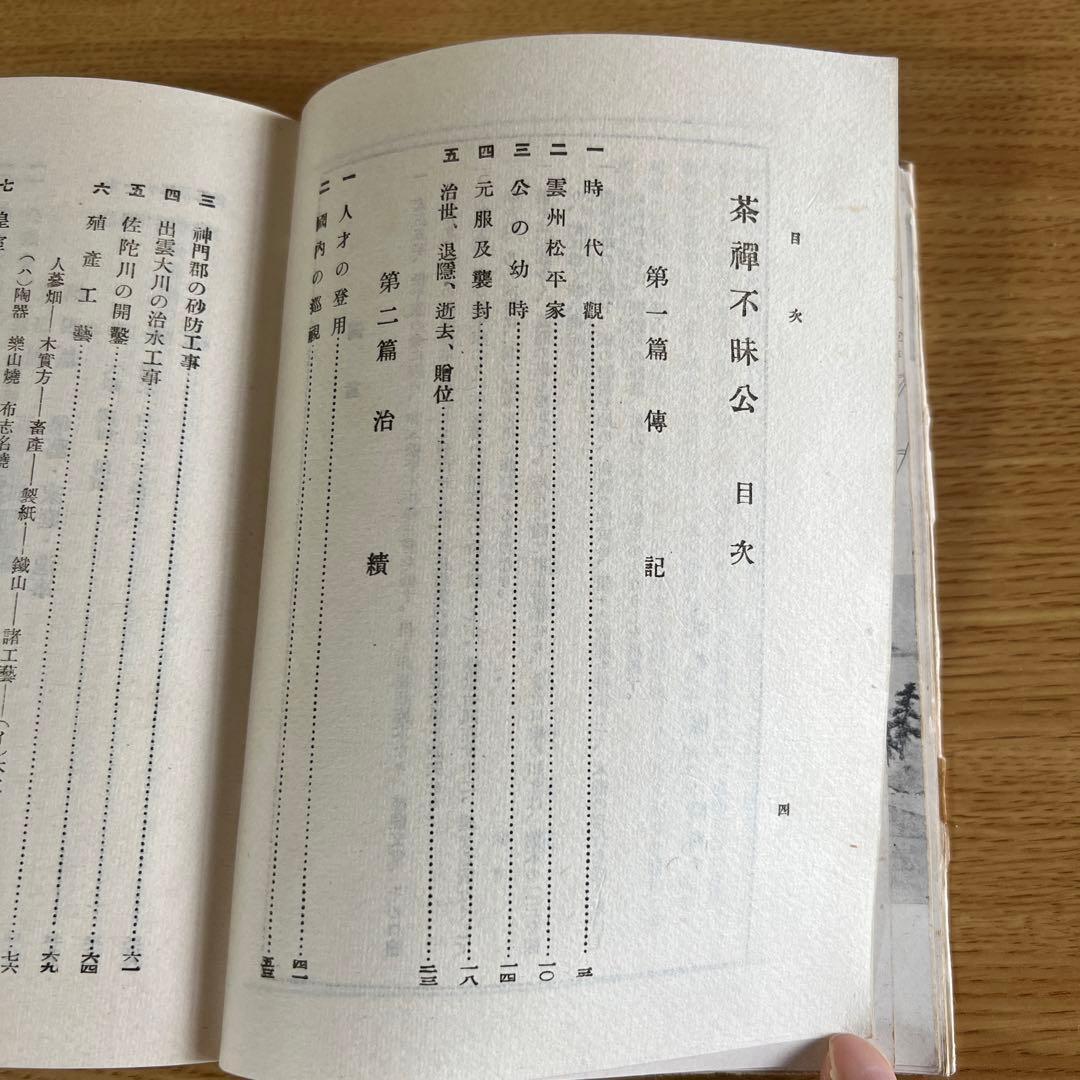 目次
四
茶禪不昧公 目次
第一篇 傳記
一 時代觀……
二 雲州松平家……一〇
三 公の幼時……一四
四 元服及襲封……一八
五 治世、退隱、逝去、贈位……二三
第二篇 治績
一 人才の登用……四一
二 國內の巡視……五三
三 神門郡の砂防工事……六一
四 出雲大川の治水工事……六四
五 佐陀川の開鑿……六九
六 殖產工藝……七六
人蔘畑——木實方——畜產——製紙——鐵山——諸工藝——(イ)
(ハ)陶器 樂山燒 布志名燒
七